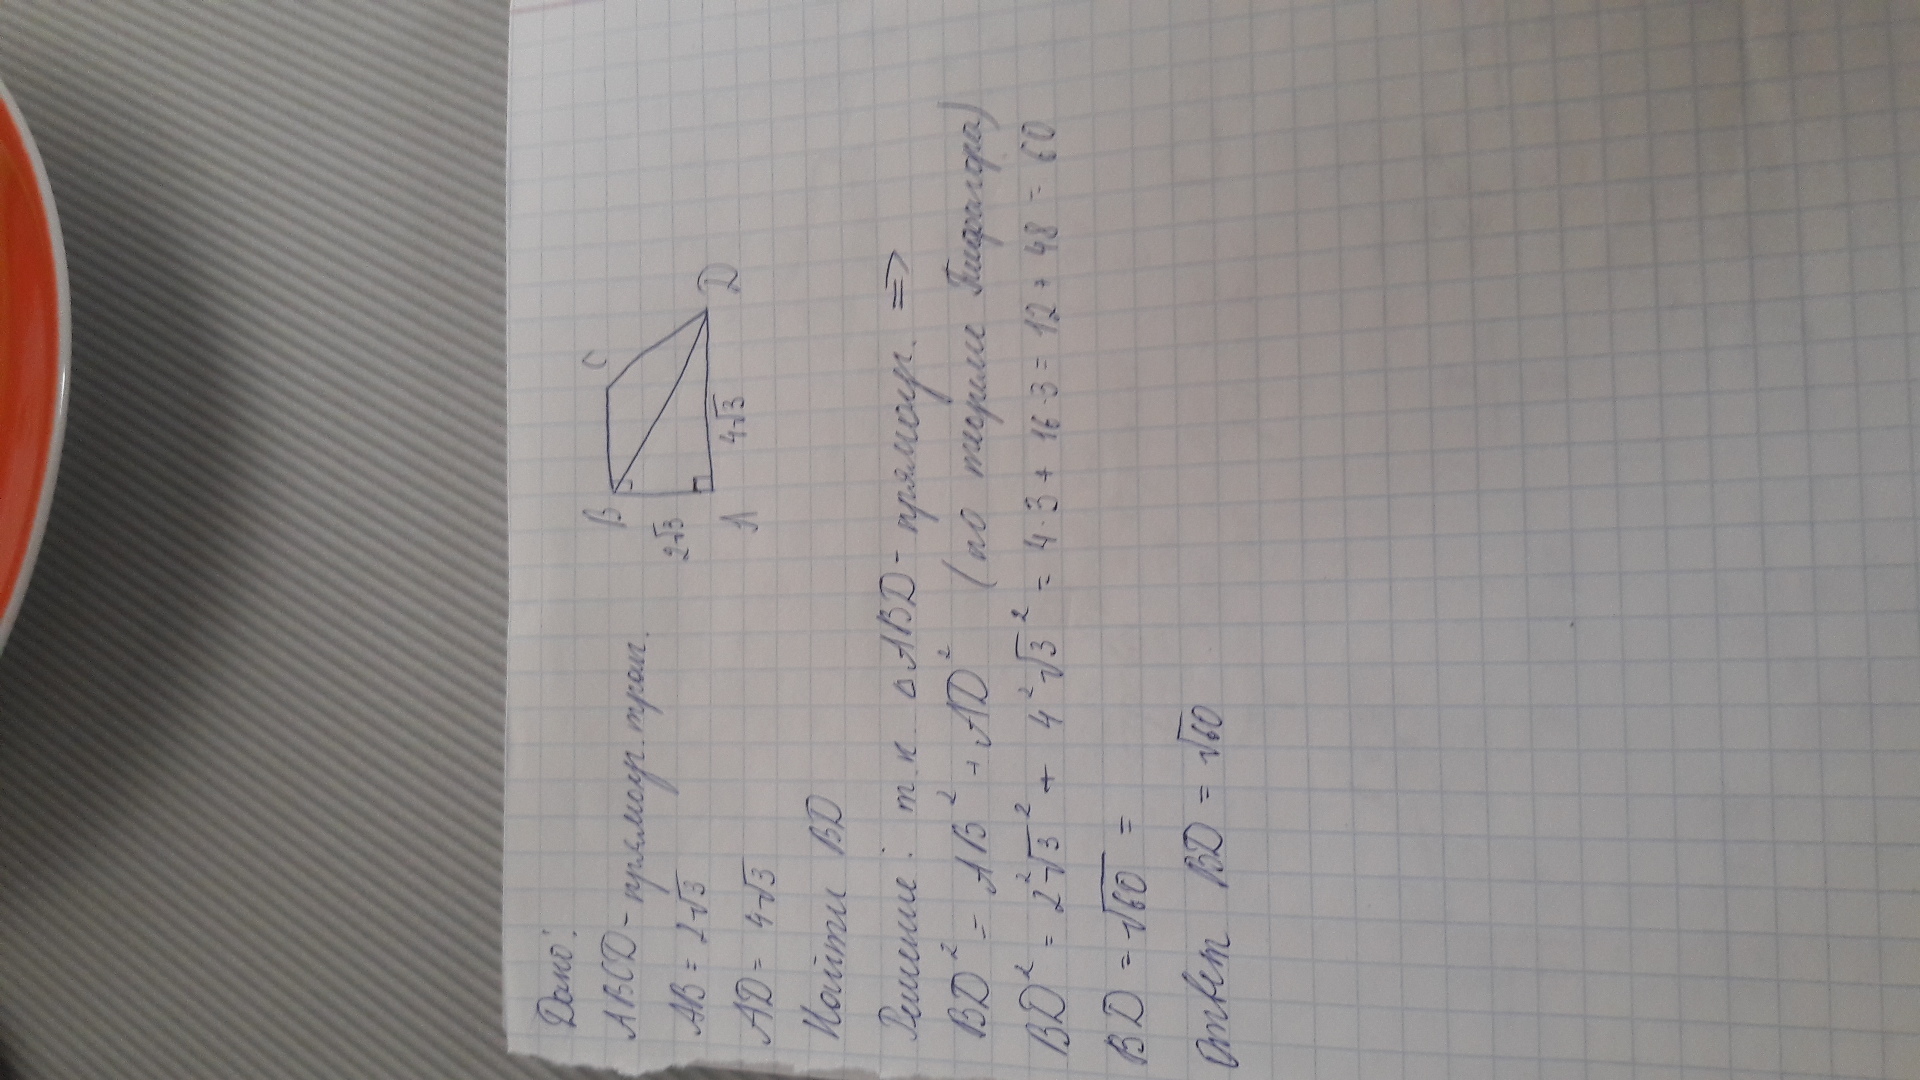 Дано:
ABCD - прямоуг. трап.
AB = 2√3
AD = 4√3
B
C
2√3
A
4√3
D
Найти BD
Решение: т.к. △ABD - прямоуг. =>
BD² = AB² + AD² (по теореме Пифагора)
BD² = 2²√3² + 4²√3² = 4·3 + 16·3 = 12 + 48 = 60
BD = √60 =
Ответ BD = √60